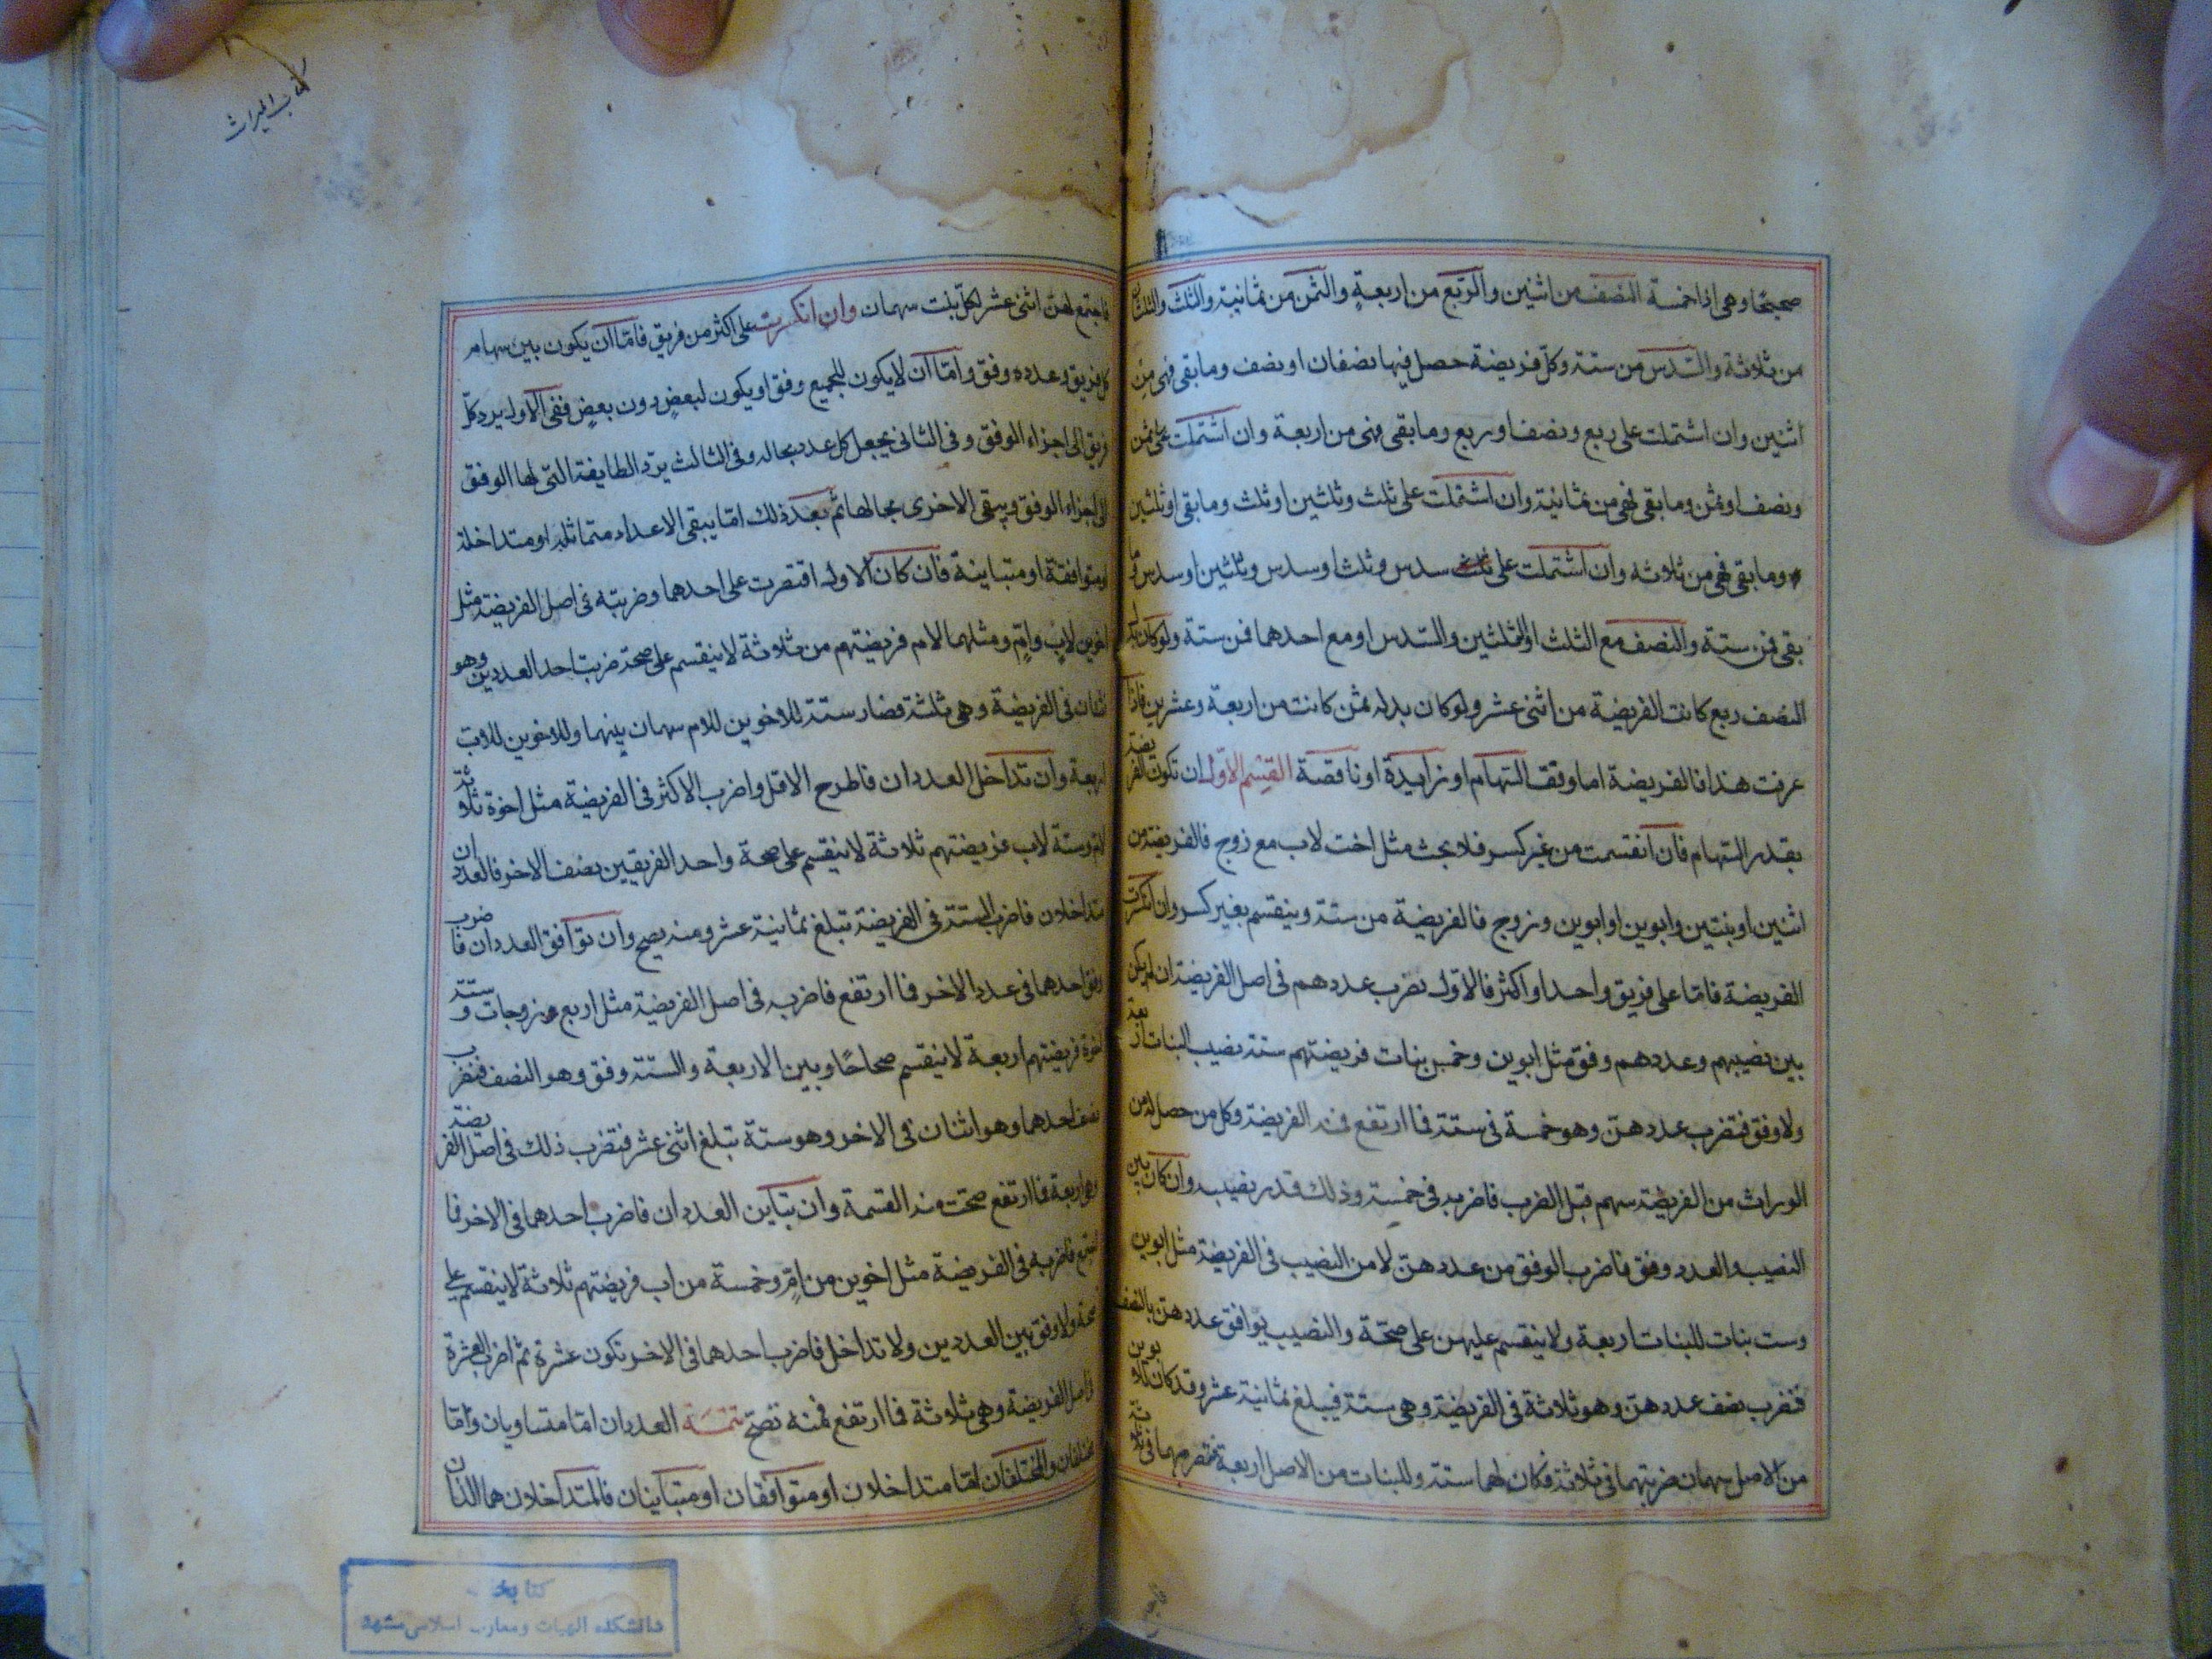 صحيحًا وهى اذا خمسة النصف من اثنين والربع من اربعة والثمن من ثمانية والثلث والثلثان
من ثلاثة والسّدس من ستة وكلّ فريضة حصل فيها نصفان او نصف وما بقى فهى من
اثنين وان اشتملت على ربع ونصف او ربع وما بقى فهى من اربعة وان اشتملت على ثمن
ونصف او ثمن وما بقى فهى من ثمانية وان اشتملت على ثلث وثلثين او ثلث وما بقى او ثلثين
وما بقى فهى من ثلاثة وان اشتملت على سدس وثلث او سدس وثلثين او سدس وما
بقى فمن ستة والنصف مع الثلث او الثلثين والسّدس او مع احدهما فمن ستة ولو كان بدل
النصف ربع كانت الفريضة من اثنى عشر ولو كان بدله ثمن كانت من اربعة وعشرين فاذا
عرفت هذا فالفريضة اما وفق السّهام او زايدة او ناقصة القسم الاوّل ان تكون الفريضة
بقدر السّهام فان انقسمت من غير كسر فلا بحث مثل اخت لاب مع زوج فالفريضة من
اثنين او بنتين وابوين او ابوين وزوج فالفريضة من ستة وينقسم بغير كسر وان انكسرت
الفريضة فامّا على فريق واحد او اكثر فالاوّل نضرب عددهم فى اصل الفريضة ان لم يكن
بين نصيبهم وعددهم وفق مثل ابوين وخمس بنات فريضتهم ستة نصيب البنات اربعة
ولا وفق فنضرب عددهنّ وهو خمسة فى ستة فما ارتفع فمنه الفريضة وكل من حصل له من
الوراث من الفريضة سهم قبل الضرب فاضربه فى خمسة وذلك قدر نصيبه وان كان بين
النصيب والعدد وفق فاضرب الوفق من عددهنّ لا من النصيب فى الفريضة مثل ابوين
وست بنات للبنات اربعة ولا ينقسم عليهن على صحّة والنصيب يوافق عددهن بالنصف
فنضرب نصف عددهنّ وهو ثلاثة فى الفريضة وهى ستة فيبلغ ثمانية عشر وقد كان للابوين
من الاصل سهمان ضربتهما فى ثلاثة فكان لهما ستة وللبنات من الاصل اربعة فى ثلاثة
كتاب الميراث
فاجتمع لهنّ اثنى عشر لكلّ بنت سهمان وان انكسرت على اكثر من فريق فامّا ان يكون بين سهام
كل فريق وعدده وفق وامّا ان لا يكون للجميع وفق او يكون لبعض دون بعض ففى الاول يرد كلّ
فريق الى اجزاء الوفق وفى الثانى يجعل كل عدد بحاله وفى الثالث يردّ الطايفة التى لها الوفق
الى اجزاء الوفق ويبقى الاخرى بحالها ثم بعد ذلك امّا يبقى الاعداد متماثلة او متداخلة
او متوافقة او متباينة فان كان الاول اقتصرت على احدهما وضربته فى اصل الفريضة مثل
اخوين لاب وامّ ومثلهما لام فريضتهم من ثلاثة لا ينقسم على صحة ضربت احد العددين وهو
اثنان فى الفريضة وهى ثلثة فصار ستة للاخوين للام سهمان بينهما وللاخوين للاب
اربعة وان تداخل العددان فاطرح الاقل واضرب الاكثر فى الفريضة مثل اخوة ثلاثة
لام وستة لاب فريضتهم ثلاثة لا ينقسم على صحة واحد الفريقين نصف الاخر فالعددان
متداخلان فاضرب الستة فى الفريضة تبلغ ثمانية عشر ومنه يصح وان توافق العددان فاضرب
وفق احدهما فى عدد الاخر فما ارتفع فاضربه فى اصل الفريضة مثل اربع زوجات وستة
اخوة فريضتهم اربعة لا ينقسم صحاحًا وبين الاربعة والستة وفق وهو النصف فنضرب
نصف احدهما وهو اثنان فى الاخر وهو ستة تبلغ اثنى عشر فنضرب ذلك فى اصل الفريضة
وهو اربعة فما ارتفع صحّت منه القسمة وان تباين العددان فاضرب احدهما فى الاخر فما
اجتمع فاضربه فى الفريضة مثل اخوين من امّ وخمسة من اب فريضتهم ثلاثة لا ينقسم على
صحة ولا وفق بين العددين ولا تداخل فاضرب احدهما فى الاخر تكون عشرة ثم اضرب العشرة
فى اصل الفريضة وهى ثلاثة فما ارتفع فمنه تصحّ تتمة العددان امّا متساويان وامّا
مختلفان والمختلفان امّا متداخلان او متوافقان او متباينان فالمتداخلان هما اللذان
كتابخانه
دانشكده الهيات ومعارف اسلامى مشهد